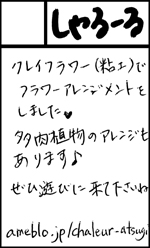 しゃるーる
クレイフラワー(粘土)で
フラワーアレンジメントを
しました♥
多肉植物のアレンジも
あります♪
ぜひ遊びに来て下さいね
ameblo.jp/chaleur-atsugi